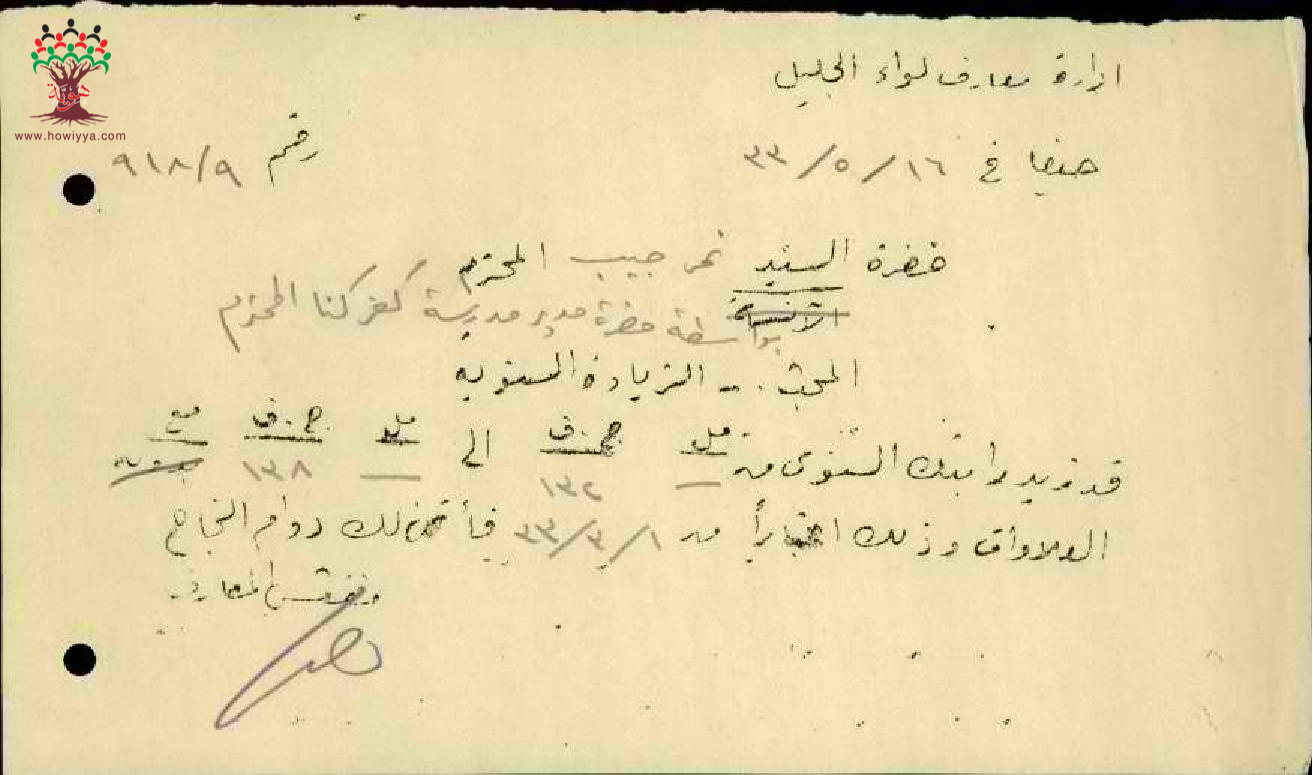 هوية
www.howiyya.com
ادارة معارف لواء الجليل
حيفا في ١٦/٥/٣٣ رقم ٩١٨/٩
حضرة السيد نمر حبيب المحترم
الآنسة
بواسطة حضرة مدير مدرسة كفركنا المحترم
المبحث .- الزيادة السنوية
قد زيد راتبك السنوي من مل ج.ف الى مل ج.ف مع
— ١٣٢ — ١٣٨ بدون
العلاوات وذلك اعتباراً من ١/٣/٣٣ فأتمنى لك دوام النجاح
مفتش المعارف